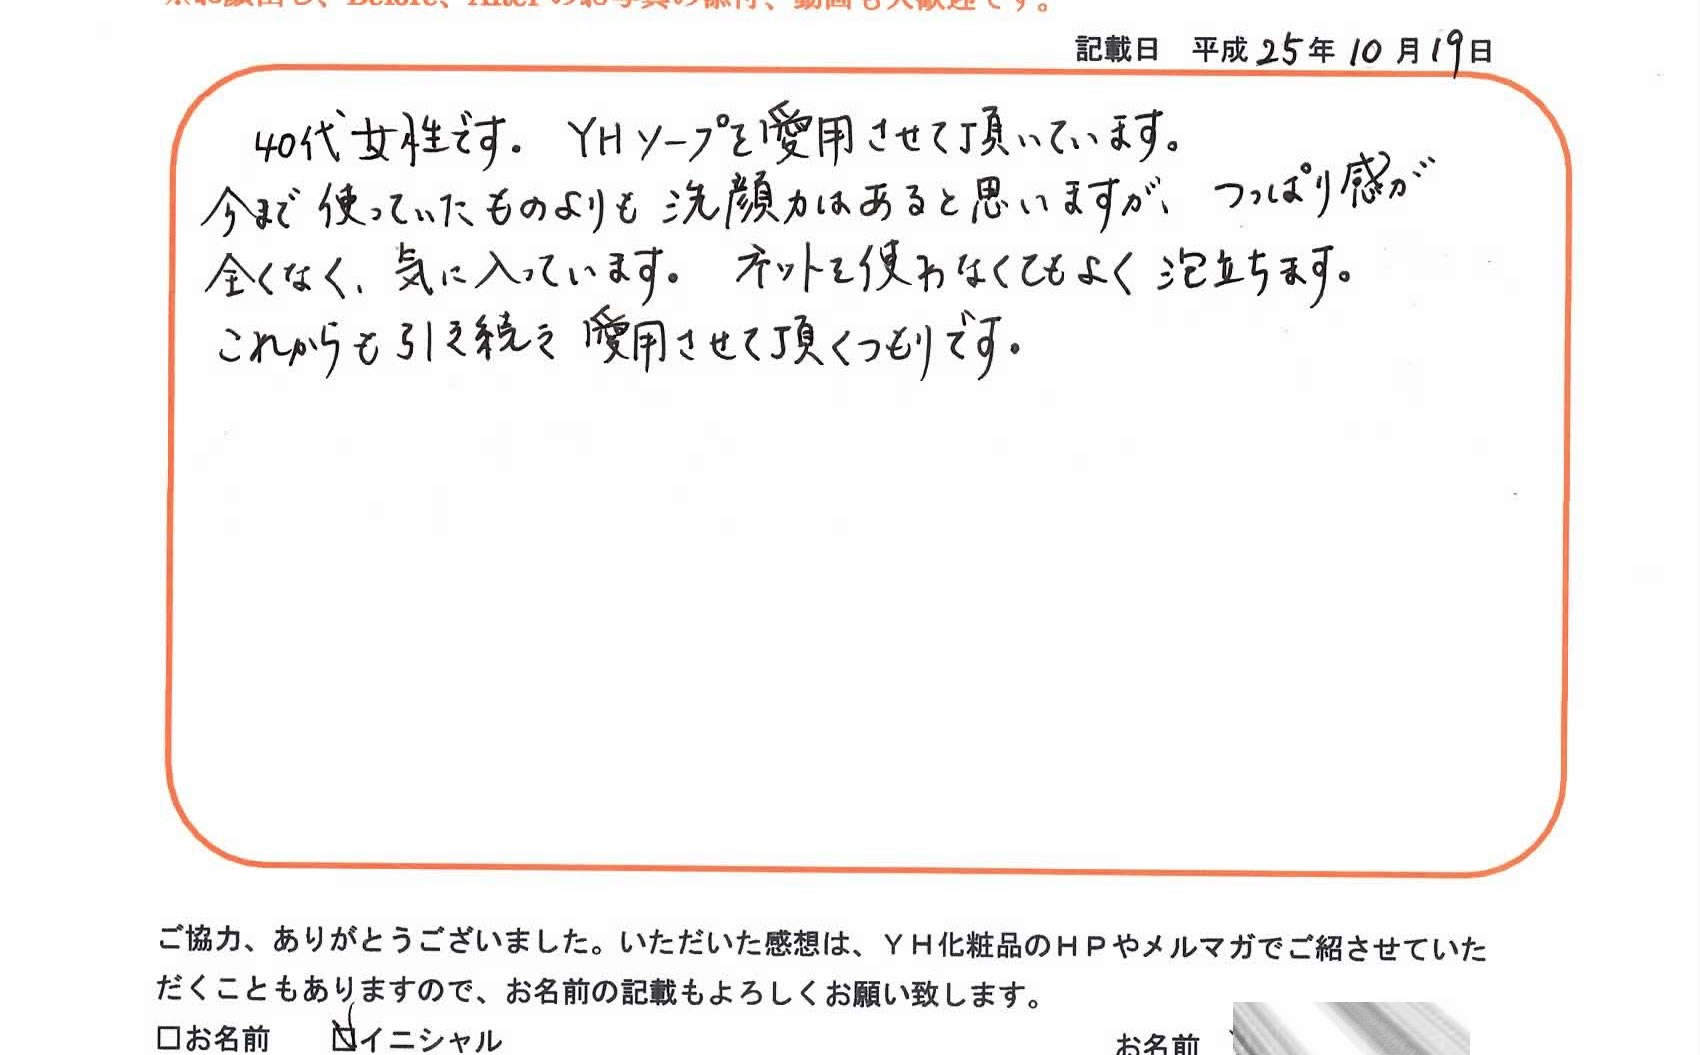 ※お顔出し、Before、Afterのお写真の添付、動画も大歓迎です。
記載日 平成25年10月19日
40代女性です。 YHソープを愛用させて頂いています。
今まで使っていたものよりも洗顔力はあると思いますが、つっぱり感が
全くなく、気に入っています。 ネットを使わなくてもよく泡立ちます。
これからも引き続き愛用させて頂くつもりです。
ご協力、ありがとうございました。いただいた感想は、ＹＨ化粧品のＨＰやメルマガでご紹させていた
だくこともありますので、お名前の記載もよろしくお願い致します。
□お名前 ☑イニシャル お名前